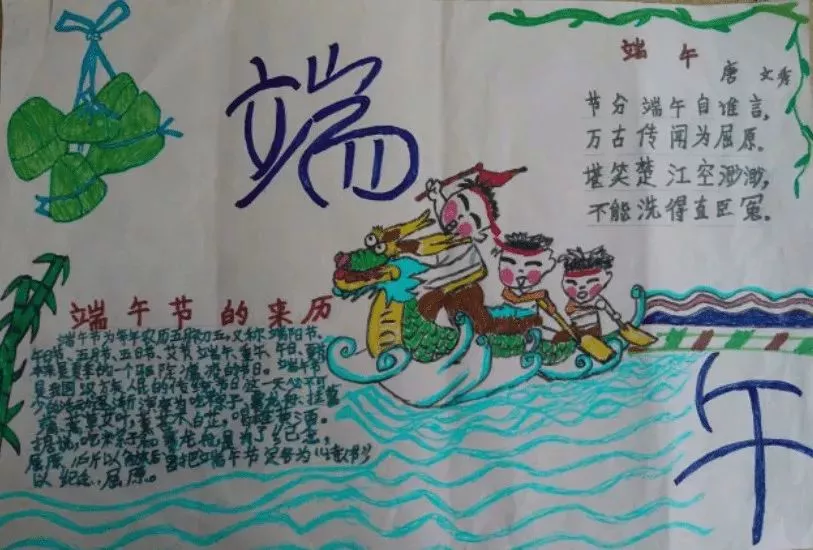 端
端午
唐 文秀
节分端午自谁言,
万古传闻为屈原。
堪笑楚江空渺渺,
不能洗得直臣冤。
端午节的来历
端午节为每年农历五月初五,又称端阳节、
午日节、五月节、五日节、艾节、端午、重午、午日、夏节
本来是夏季的一个驱除瘟疫的节日。端午节
是我国汉族人民的传统节日这一天必不可
少的活动逐渐演变为吃粽子、赛龙舟、挂菖
蒲、蒿草、艾叶,薰苍术、白芷,喝雄黄酒。
据说,吃粽子和赛龙舟,是为了纪念
屈原,所以解放后曾把端午节定名为“诗人节”
以纪念,屈原。
午